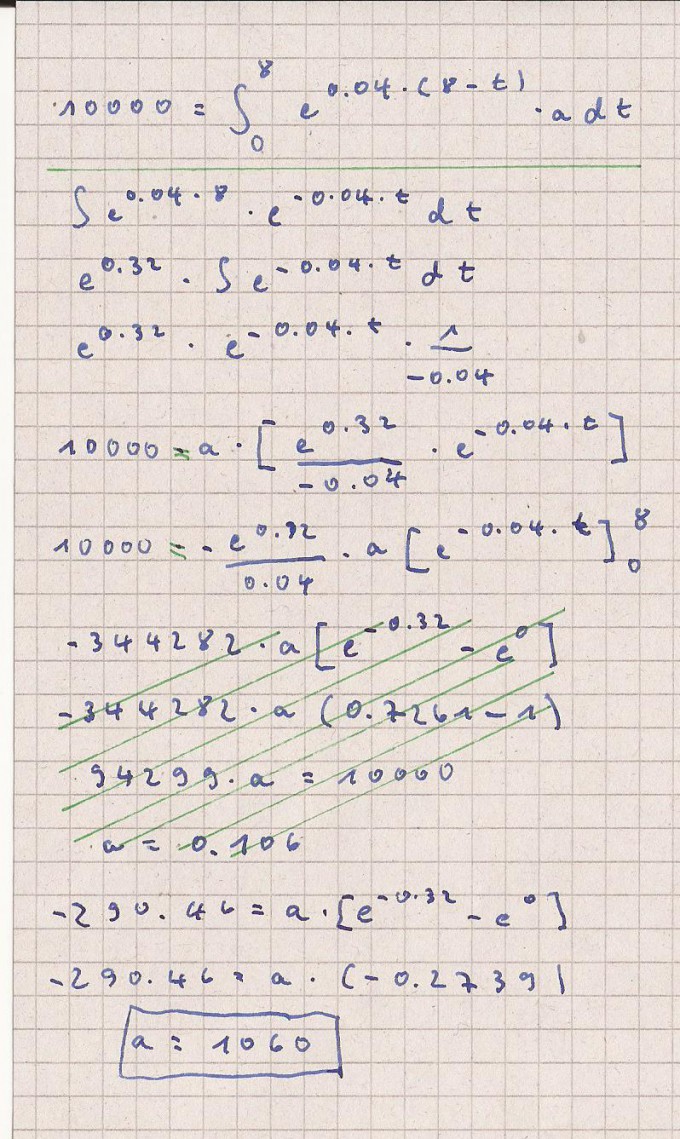 10000 = ∫₀⁸ e^(0.04·(8-t)) · a dt
∫ e^(0.04·8) · e^(-0.04·t) dt
e^(0.32) · ∫ e^(-0.04·t) dt
e^(0.32) · e^(-0.04·t) · 1/-0.04
10000 = a · [ e^(0.32)/-0.04 · e^(-0.04·t) ]
10000 = - e^(0.32)/0.04 · a [ e^(-0.04·t) ]₀⁸
-344282 · a [ e^(-0.32) - e^0 ]
-344282 · a (0.7261-1)
94299 · a = 10000
a = 0.106
-290.46 = a · [e^(-0.32) - e^0]
-290.46 = a · (-0.2739)
a = 1060